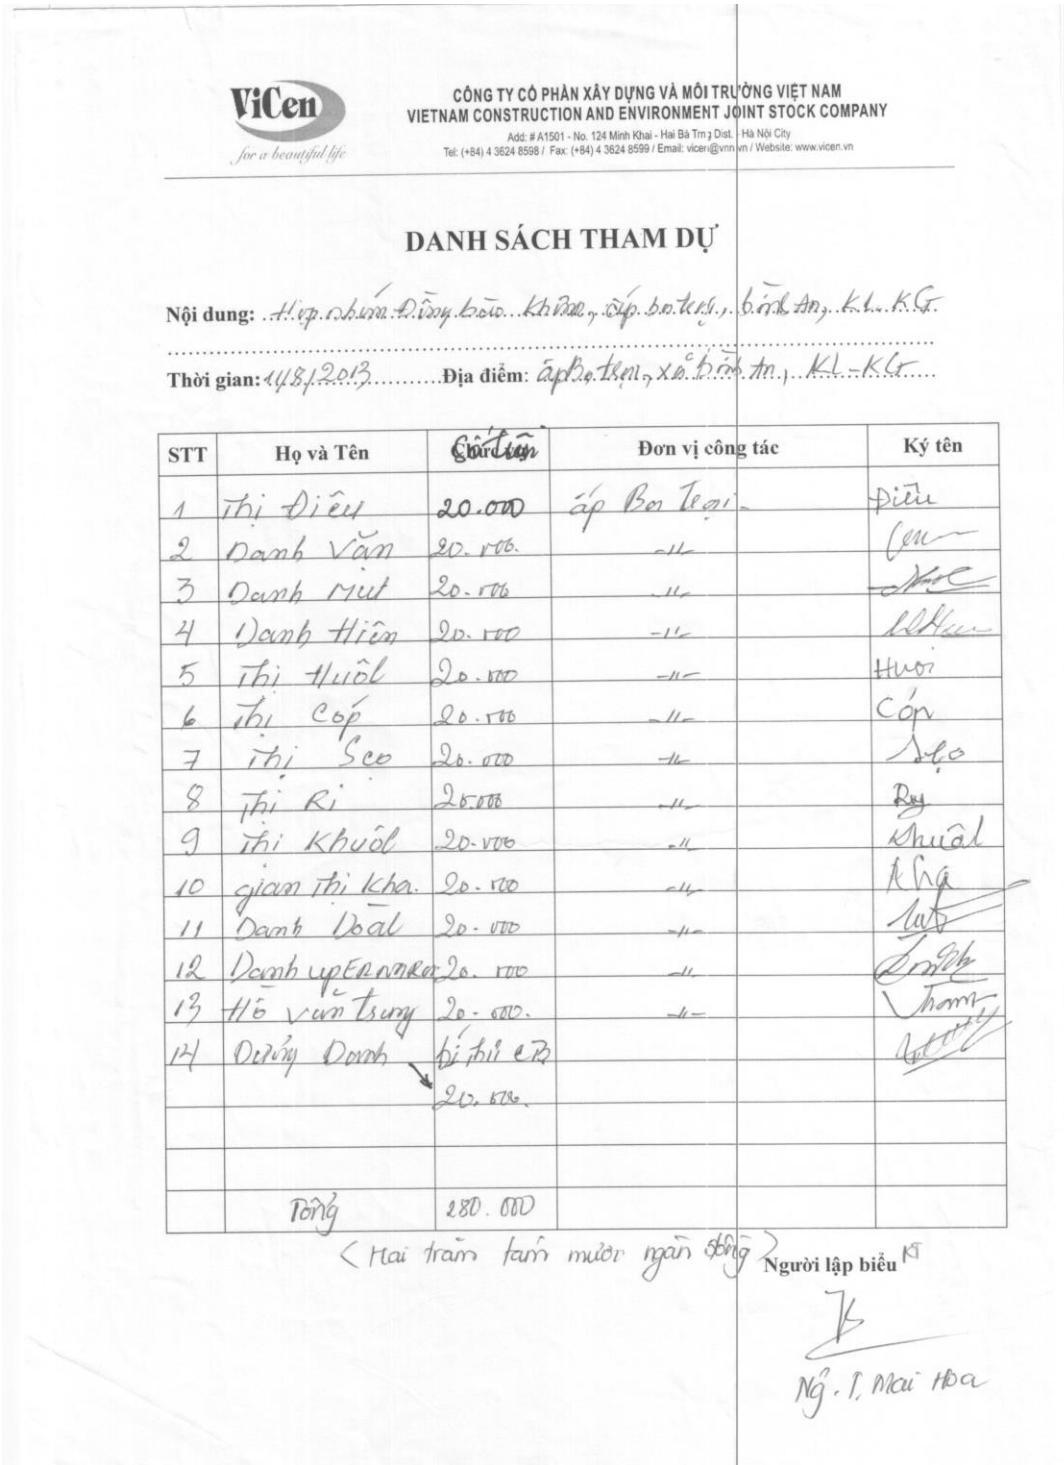 ViCen
for a beautiful life
CÔNG TY CỔ PHẦN XÂY DỰNG VÀ MÔI TRƯỜNG VIỆT NAM
VIETNAM CONSTRUCTION AND ENVIRONMENT JOINT STOCK COMPANY
Add: # A1501 - No. 124 Minh Khai - Hai Bà Trng Dist. - Hà Nội City
Tel: (+84) 4 3624 8598 / Fax: (+84) 4 3624 8599 / Email: vicen@vnn.vn / Website: www.vicen.vn
DANH SÁCH THAM DỰ
Nội dung: Họp nhóm Đồng bào Khơme, ấp ba trại, bình An, KL-KG
Thời gian: 14/8/2013 Địa điểm: ấp Ba trại, xã bình An, KL-KG
STT Họ và Tên Số tiền Đơn vị công tác Ký tên
1 Thị Điều 20.000 ấp Ba Trại - Điều
2 Danh Văn 20.000. -"-
3 Danh Mut 20.000 -"-
4 Danh Hiên 20.000 -"-
5 Thị Huôl 20.000 -"- Huôi
6 Thị Cóp 20.000 -"- Cóp
7 Thị Sẹo 20.000 -"- Sẹo
8 Thị Ri 20.000 -"- Ry
9 Thị Khuôl 20.000 -"- Khuôl
10 gian Thị Kha. 20.000 -"- Kha
11 Danh Doal 20.000 -"-
12 Danh 20.000 -"-
13 Hồ Văn Trung 20.000. -"-
14 Danh bí thư CB
20.000.
Tổng 280.000
(Hai trăm tám mươi ngàn đồng)
Người lập biểu
Ng. T. Mai Hoa